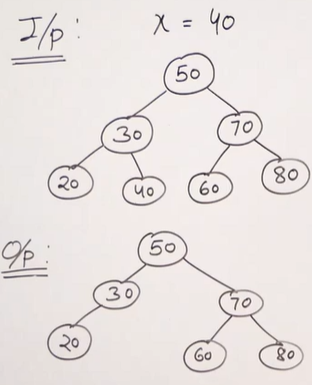 I/p: x = 40
50
30 70
20 40 60 80
O/p:
50
30 70
20 60 80